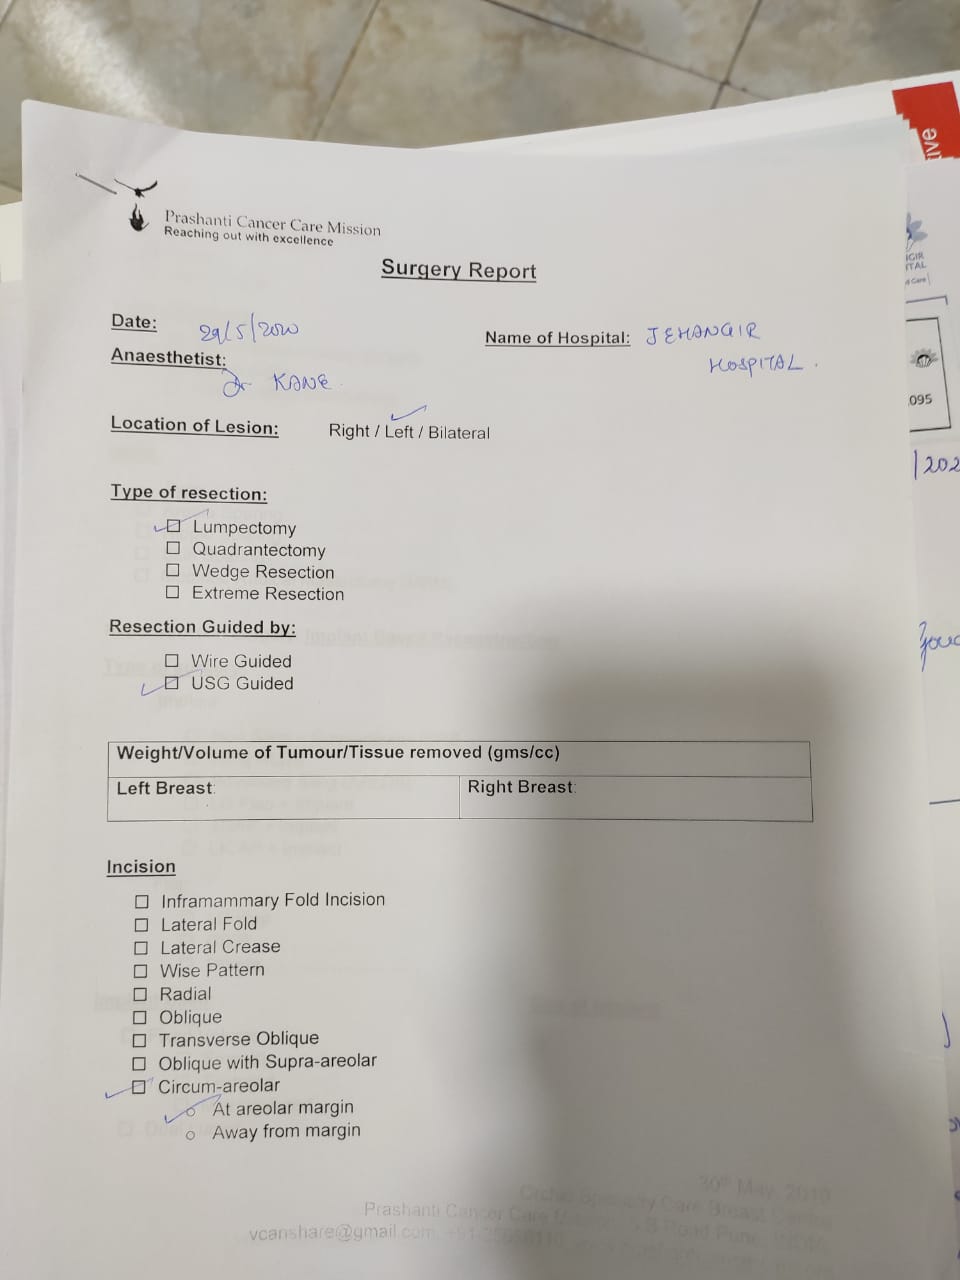 Prashanti Cancer Care Mission
Reaching out with excellence
Surgery Report
Date: 29/5/2020
Name of Hospital: JEHANGIR
HOSPITAL.
Anaesthetist:
Dr KANE
Location of Lesion: Right / Left / Bilateral
Type of resection:
Lumpectomy
Quadrantectomy
Wedge Resection
Extreme Resection
Resection Guided by:
Wire Guided
USG Guided
Weight/Volume of Tumour/Tissue removed (gms/cc)
Left Breast:
Right Breast:
Incision
Inframammary Fold Incision
Lateral Fold
Lateral Crease
Wise Pattern
Radial
Oblique
Transverse Oblique
Oblique with Supra-areolar
Circum-areolar
At areolar margin
Away from margin
30th May, 2019
Prashanti Cancer Care
vcanshare@gmail.com
095
/202